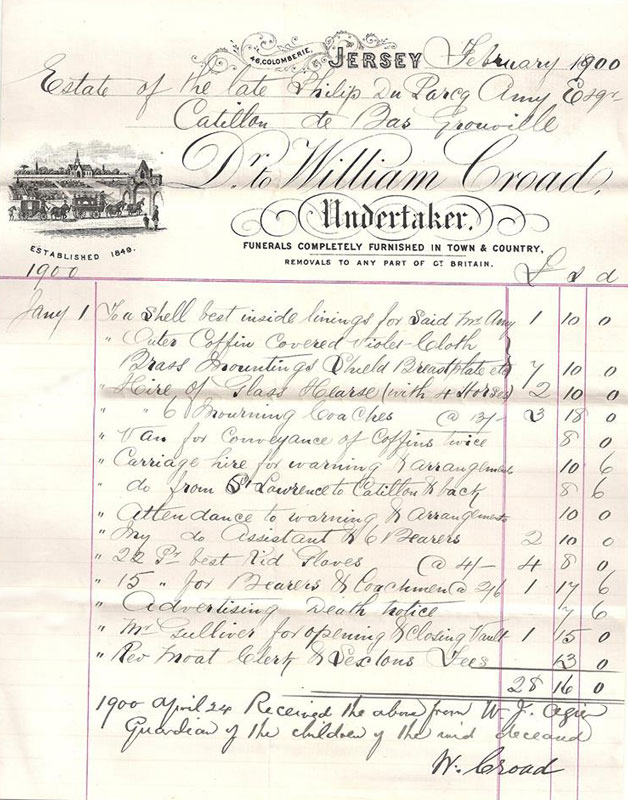 46, COLOMBERIE, JERSEY February 1900
Estate of the late Philip Du Parcq Amy Esqr
Catillon de Bas Grouville
Dr. to William Croad,
Undertaker.
FUNERALS COMPLETELY FURNISHED IN TOWN & COUNTRY,
REMOVALS TO ANY PART OF GT. BRITAIN.
ESTABLISHED 1849.
1900 £ s d
Jany 1 To a Shell best inside linings for Said Mr Amy 1 10 0
" Outer Coffin Covered Violet Cloth
Brass Mountings Shield Breastplate etc 7 10 0
" Hire of Glass Hearse (with 4 Horses) 2 10 0
" " 6 Mourning Coaches @ 13/- 3 18 0
" Van for Conveyance of Coffins twice 8 0
" Carriage hire for warning & arrangements 10 6
" do from St Lawrence to Catillon & back 8 6
" Attendance to warning & arrangements 10 0
" My do Assistant & 6 Bearers 2 10 0
" 22 Pr best Kid Gloves @ 4/- 4 8 0
" 15 " for Bearers & Coachmen @ 2/6 1 17 6
" Advertising Death Notice 7 6
" Mr Gulliver for opening & Closing Vault 1 15 0
" Rev Moat Clerk & Sextons Fees 13 0
28 16 0
1900 April 24 Received the above from W. J.
Guardian of the children of the said deceased
W. Croad